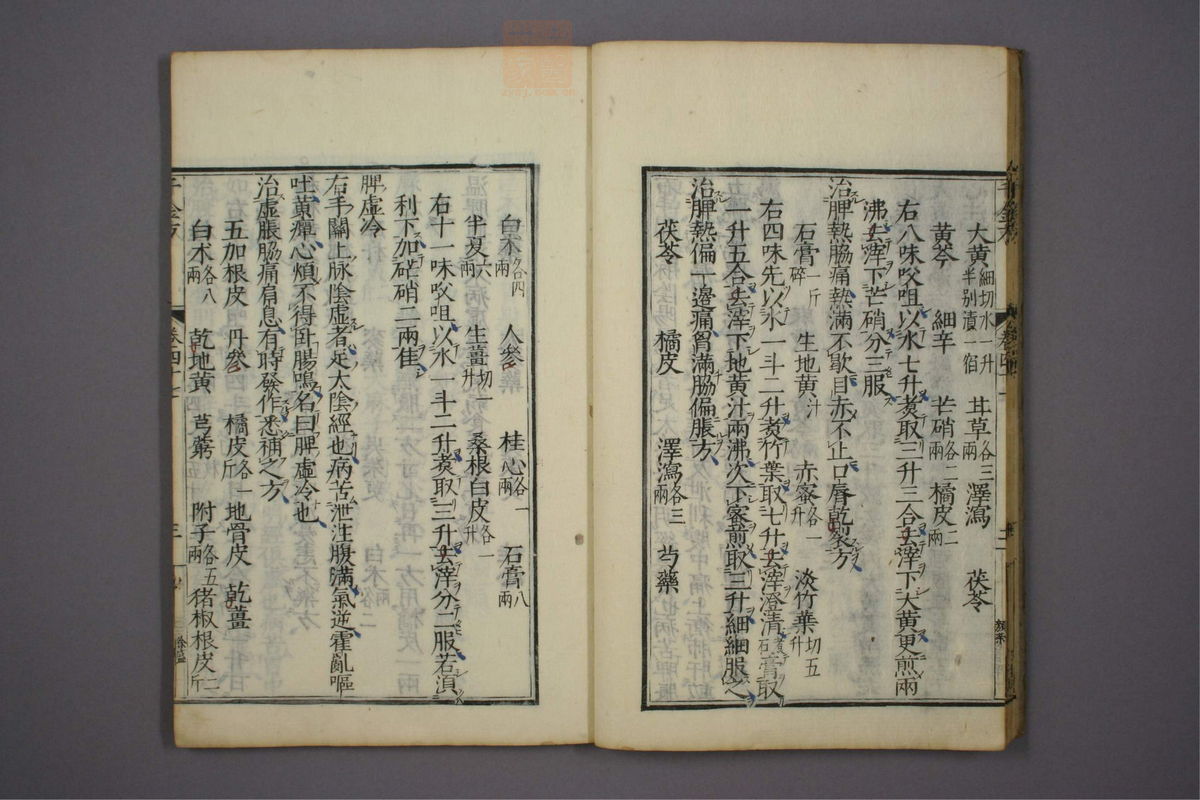 大黃細切水一升半別漬一宿　甘草各三兩　澤瀉　茯苓
黃芩　細辛　芒硝各二兩　橘皮二兩
右八味㕮咀以水七升煑取三升三合去滓下大黃更煎兩
沸去滓下芒硝分三服
治脾熱脇痛熱滿不歇目赤不止口脣乾裂方
石膏一斤碎　生地黃汁　赤蜜各一升　淡竹葉切五升
右四味先以水一斗二升煑竹葉取七升去滓澄清煑石膏取
一升五合去滓下地黃汁兩沸次下蜜煎取三升細細服之
治脾熱偏一邊痛胷滿脇偏脹方
茯苓　橘皮　澤瀉各三兩　芍藥
白朮各四兩　人參　桂心各一兩　石膏八兩
半夏六兩　生薑切一升　桑根白皮各一升
右十一味㕮咀以水一斗二升煑取三升去滓分三服若須
利下加芒硝二兩佳
脾虛冷
右手關上脉陰虛者足太陰經也病苦泄注腹滿氣逆霍亂嘔
吐黃癉心煩不得臥腸鳴名曰脾虛冷也
治虛脹脇痛肩息有時發作悉補之方
五加根皮　丹參　橘皮各一斤　地骨皮　乾薑
白朮各八兩　乾地黃　芎藭　附子各五兩　猪椒根皮二斤